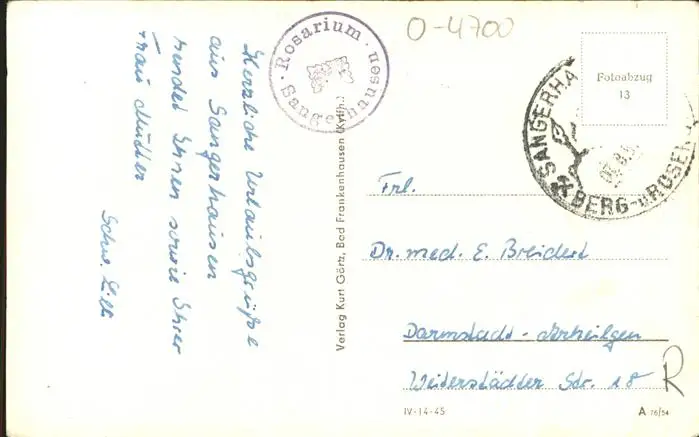 Herzliche Urlaubsgrüße
aus Sangerhausen
sendet Ihnen sowie Ihrer
Frau Mutter
Schw. Lilli
· Rosarium ·
Sangerhausen
Verlag Kurt Görtz, Bad Frankenhausen (Kyffh.)
O-4700
Fotoabzug
13
SANGERHA
BERG- u. ROSEN
Frl.
Dr. med. E. Breidert
Darmstadt-Arheilgen
Weiterstädter Str. 18
R
IV-14-45
A 76/54